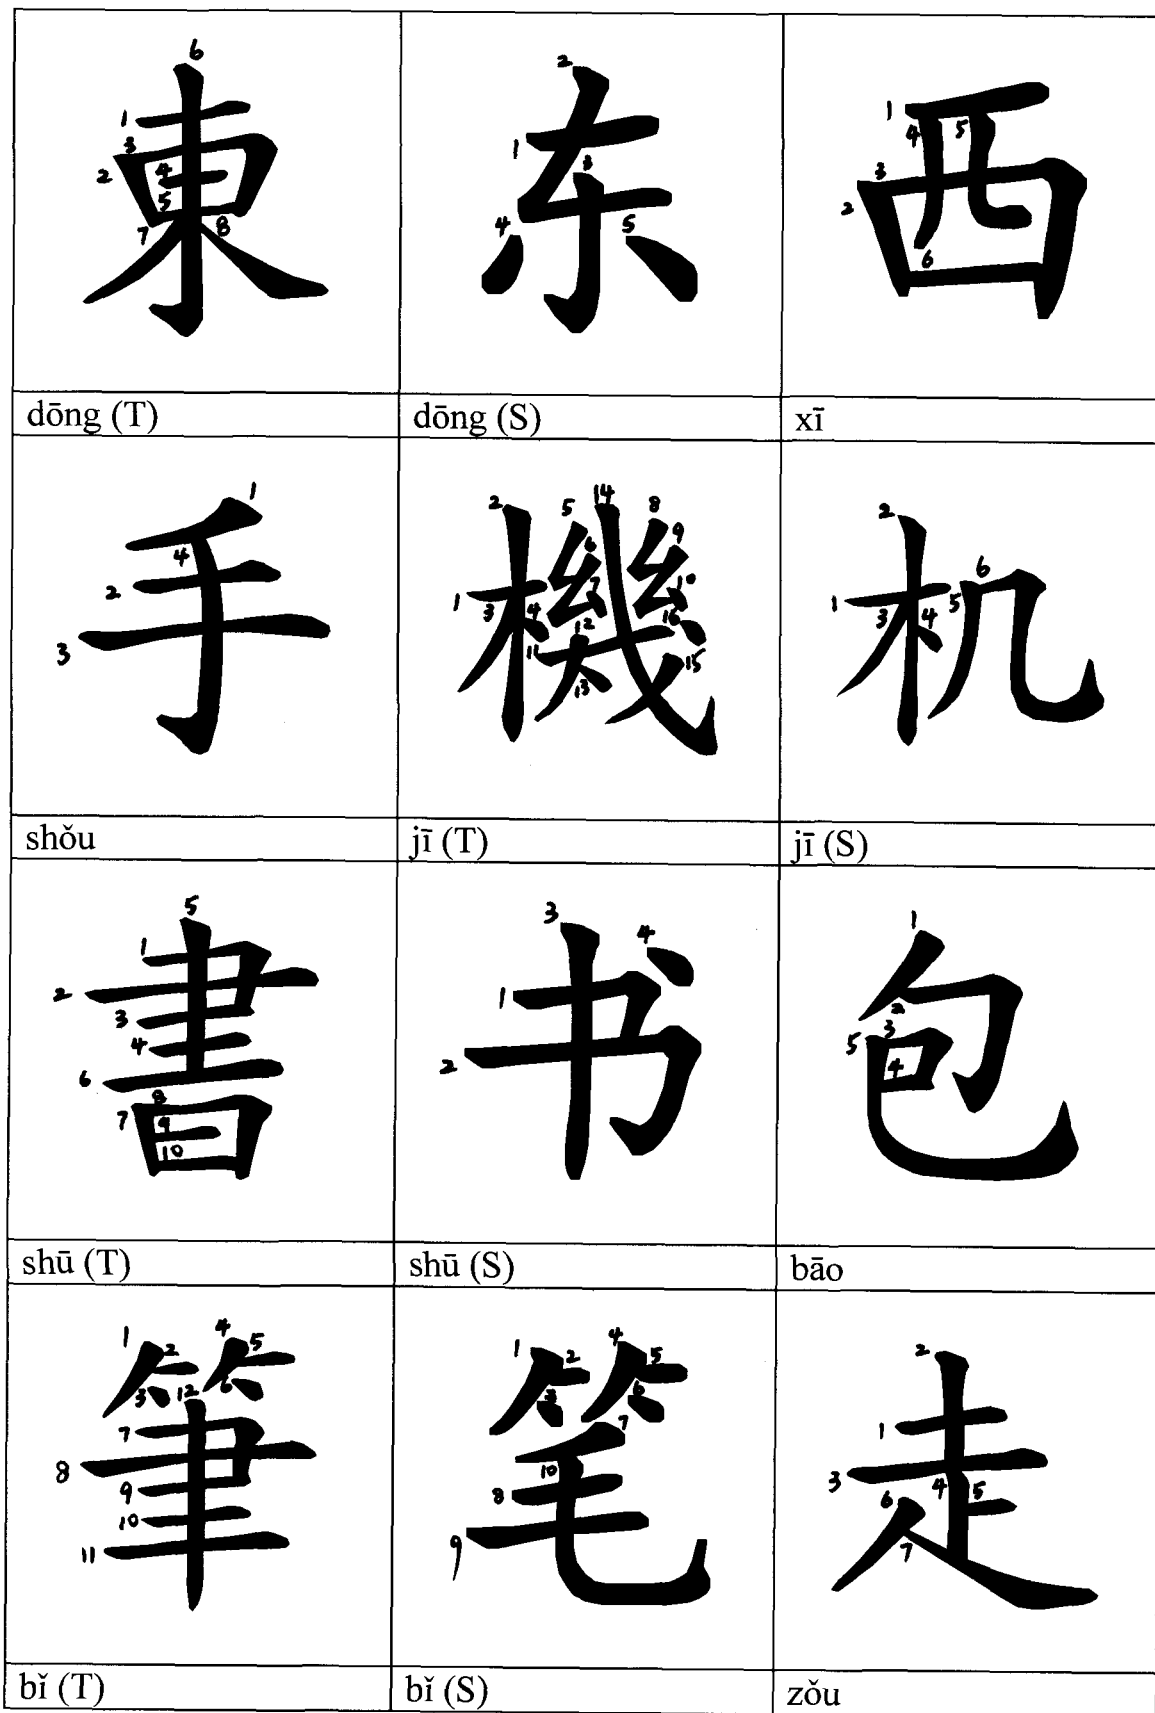 東 东 西
dōng (T) dōng (S) xī
手 機 机
shǒu jī (T) jī (S)
書 书 包
shū (T) shū (S) bāo
筆 笔 走
bǐ (T) bǐ (S) zǒu